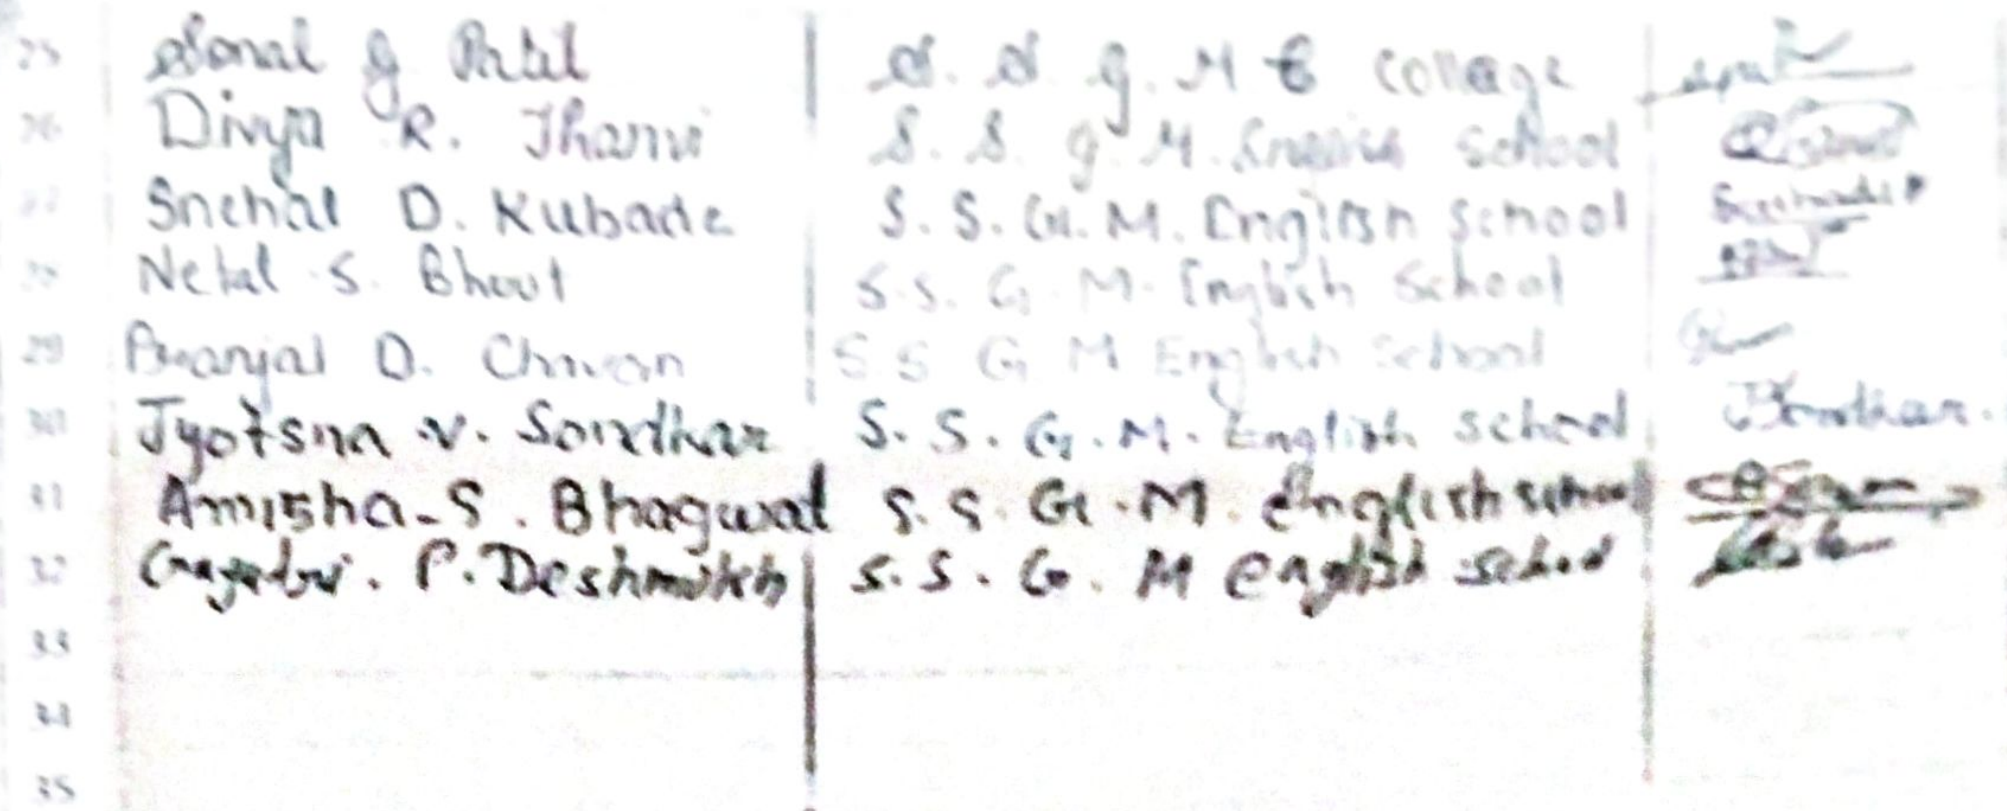 25 Sonal G Patil S. S. G. M C College
26 Divya R. Thanvi S. S. G. M. English School
27 Snehal D. Kubade S. S. G. M. English School
28 Netal S. Bhoot S. S. G. M. English School
29 Pranjal D. Chavan S S G M English School
30 Jyotsna V. Sondhar S. S. G. M. English school
31 Amisha-S. Bhagwat S. S. G. M. English school
32 Gayatri. P. Deshmukh S. S. G. M English school
33
34
35